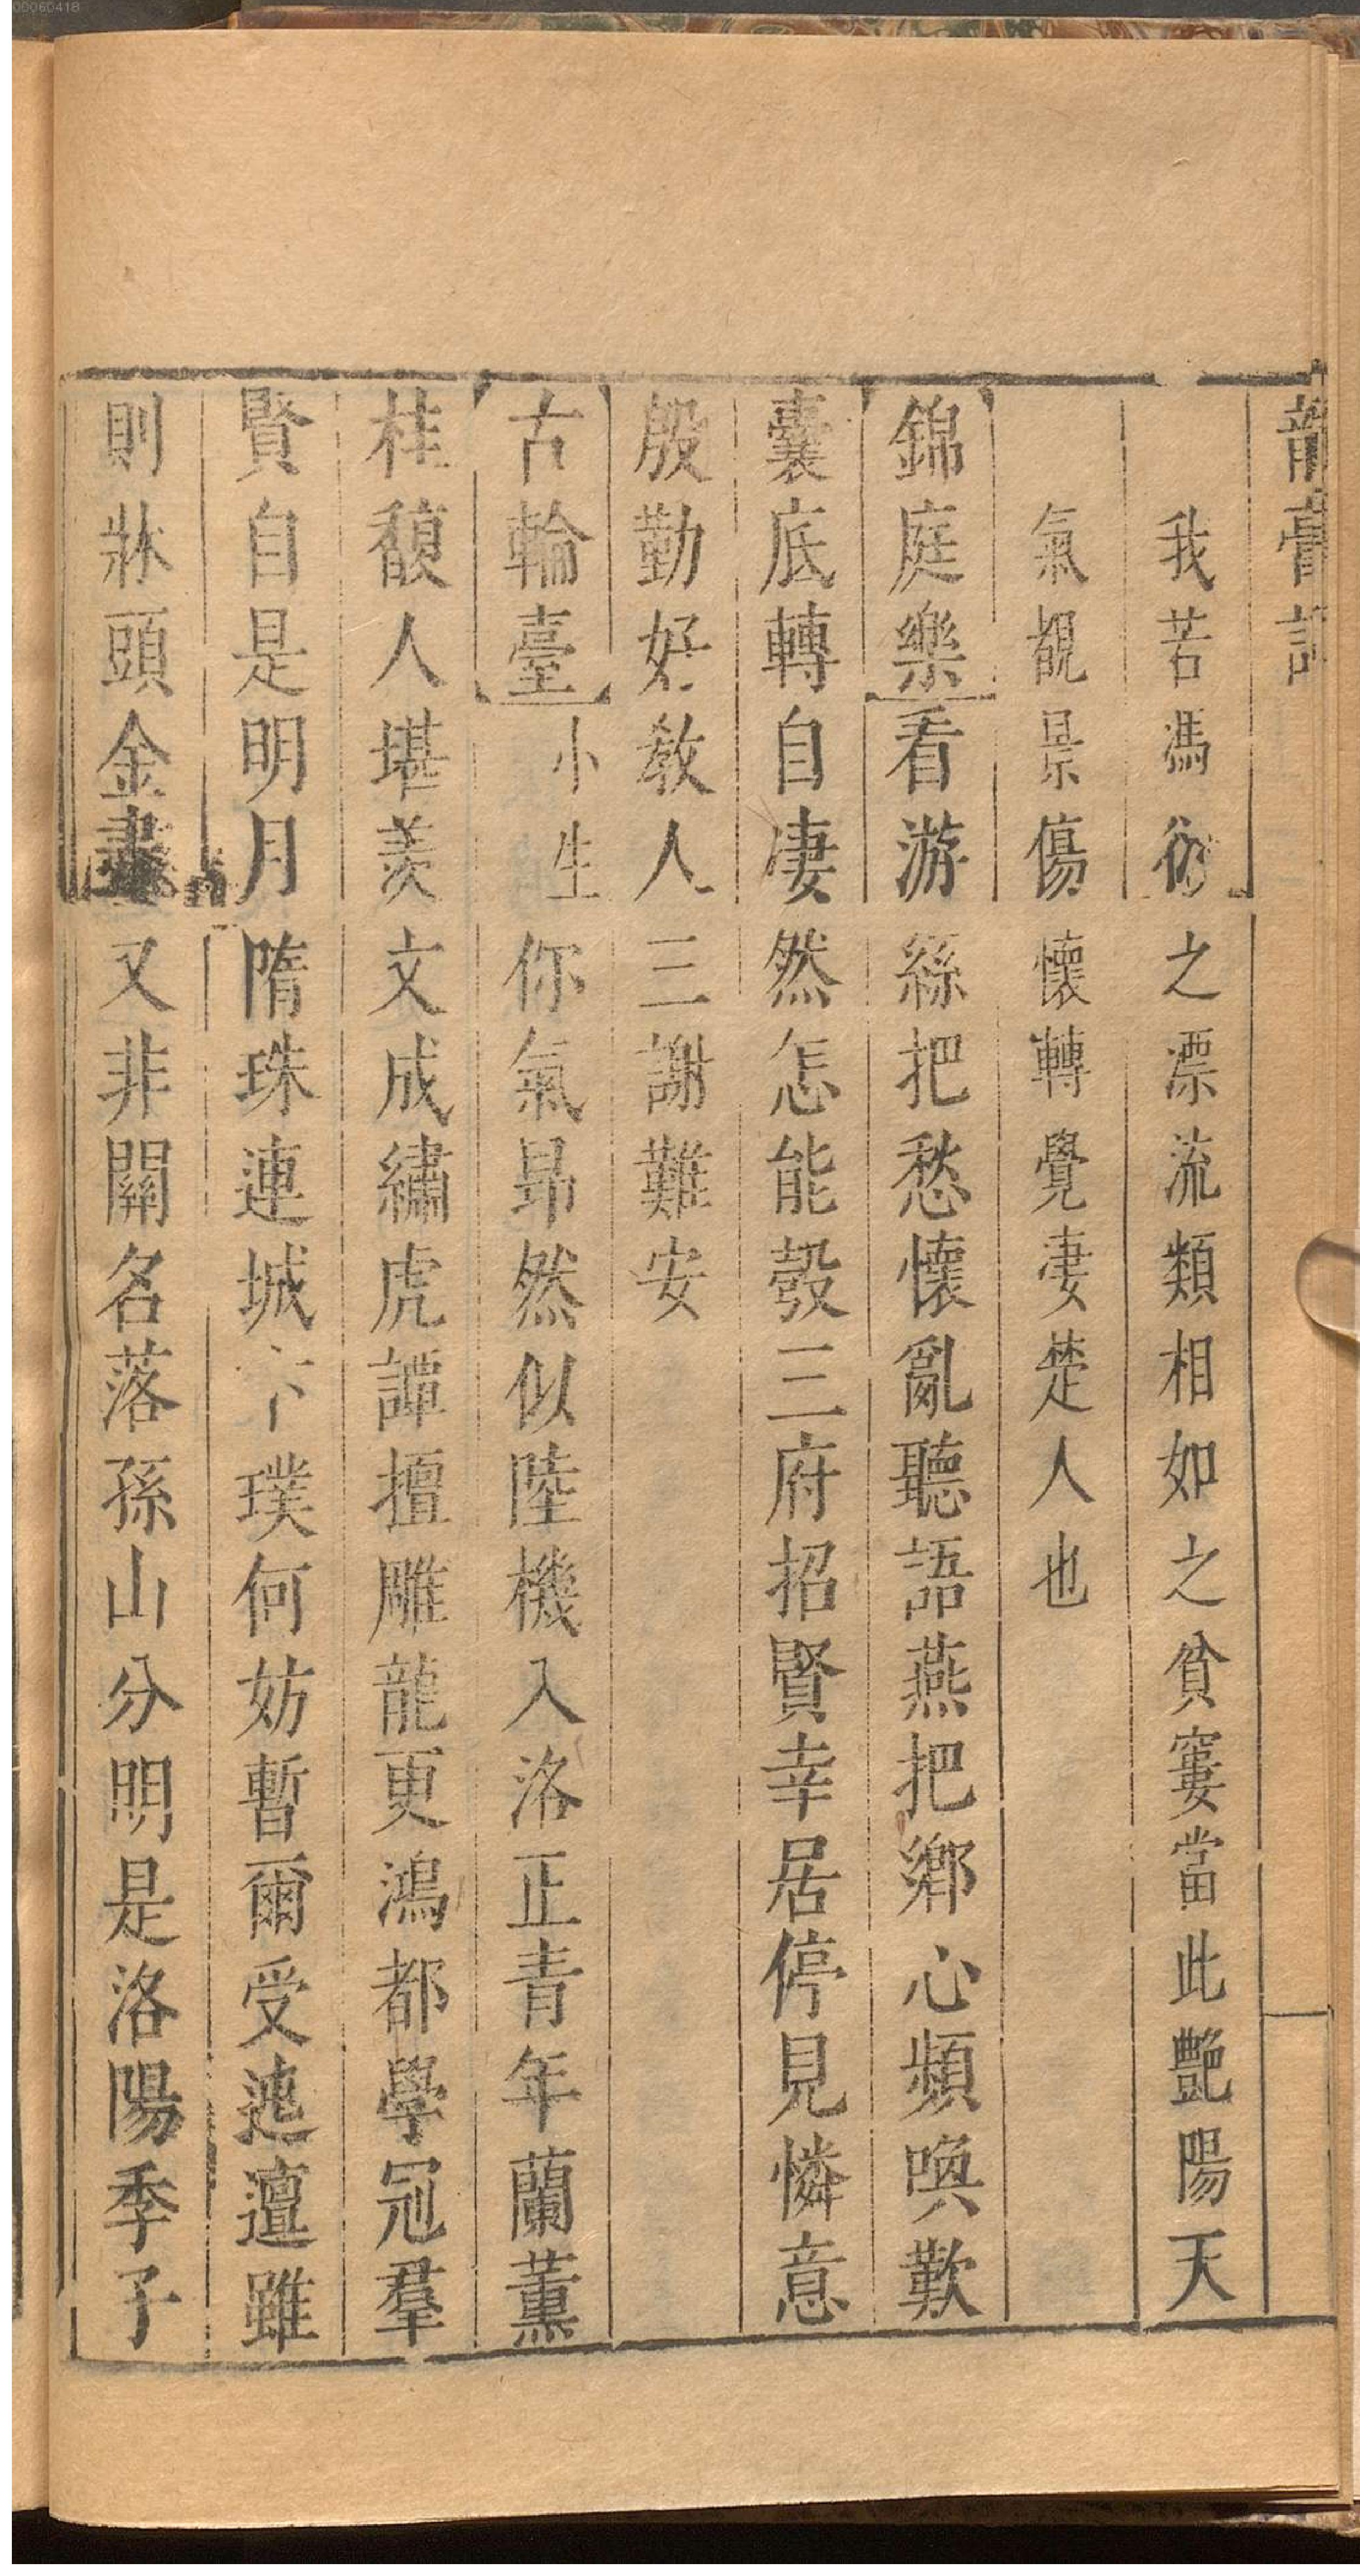 龍膏記
我苦馮衍之漂流類相如之貧窶當此艷陽天
氣覩景傷懷轉覺淒楚人也
錦庭樂看游絲把愁懷亂聽語燕把鄉心頻喚歎
囊底轉自凄然怎能彀三府招賢幸居停見憐意
殷勤好教人三謝難安
古輪臺小生你氣昻然似陸機入洛正青年蘭薰
桂馥人堪羨文成繡虎譚擅雕龍更鴻都學冠羣
賢自是明月隋珠連城卞璞何妨暫爾受迍邅雖
則牀頭金盡又非關名落孫山分明是洛陽季子
00060418